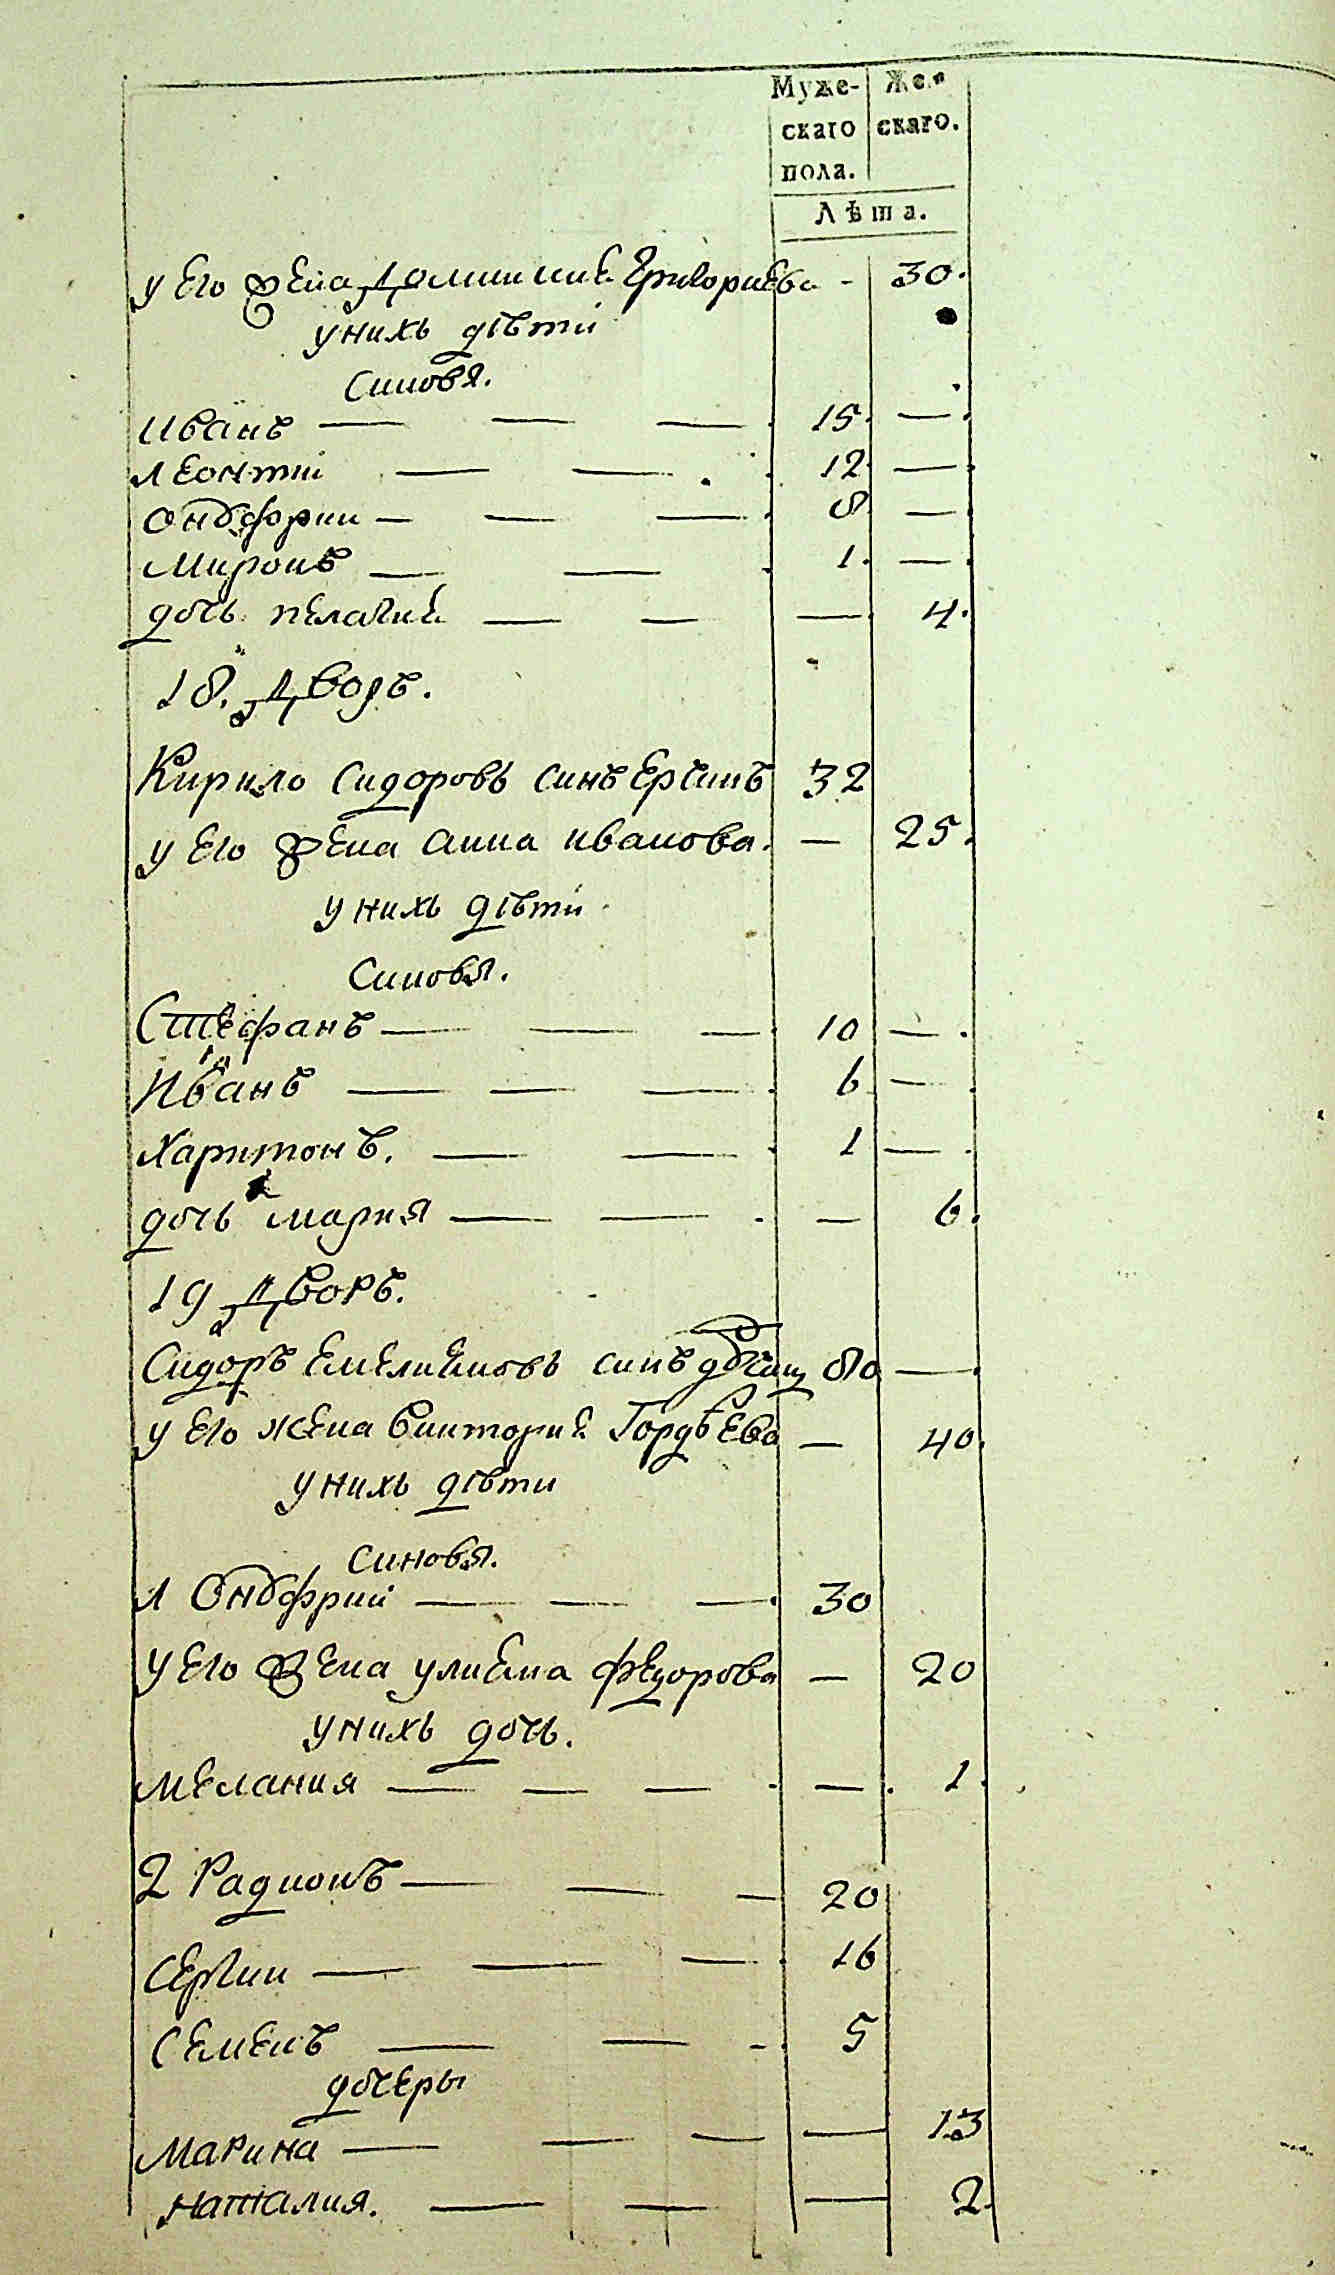 Муже- Жен
скаго скаго.
пола.
Лѣта.
у его жена Домникия Григориева - 30.
у нихъ дѣти
Синовя.
Иванъ — — — 15. —
Леонтий — — 12. —
Онофрии — — — 8 —
Миронъ — — 1. —
дочь пелагия — — — 4.
18. Дворъ.
Кирило Сидоровъ синъ 32
у его жена анна иванова. — 25.
у нихъ дѣти
Синовя.
Стефанъ — — — 10 —
Иванъ — — — 6 —
Харитонъ. — — 1 —
дочь мария — — — 6.
19 Дворъ.
Сидоръ Емелияновъ синъ 80 —
у его жена Виктория Гордѣева — 40.
у нихъ дѣти
Синовя.
1 Онофрий — — — 30
у его жена улияна федорова — 20
у нихъ дочь.
Мелания — — — — 1.
2 Радионъ — — — 20
Сергии — — — 16
Семенъ — — - 5
дочеры
Марина — — — — 13
Наталия. — — — 2.